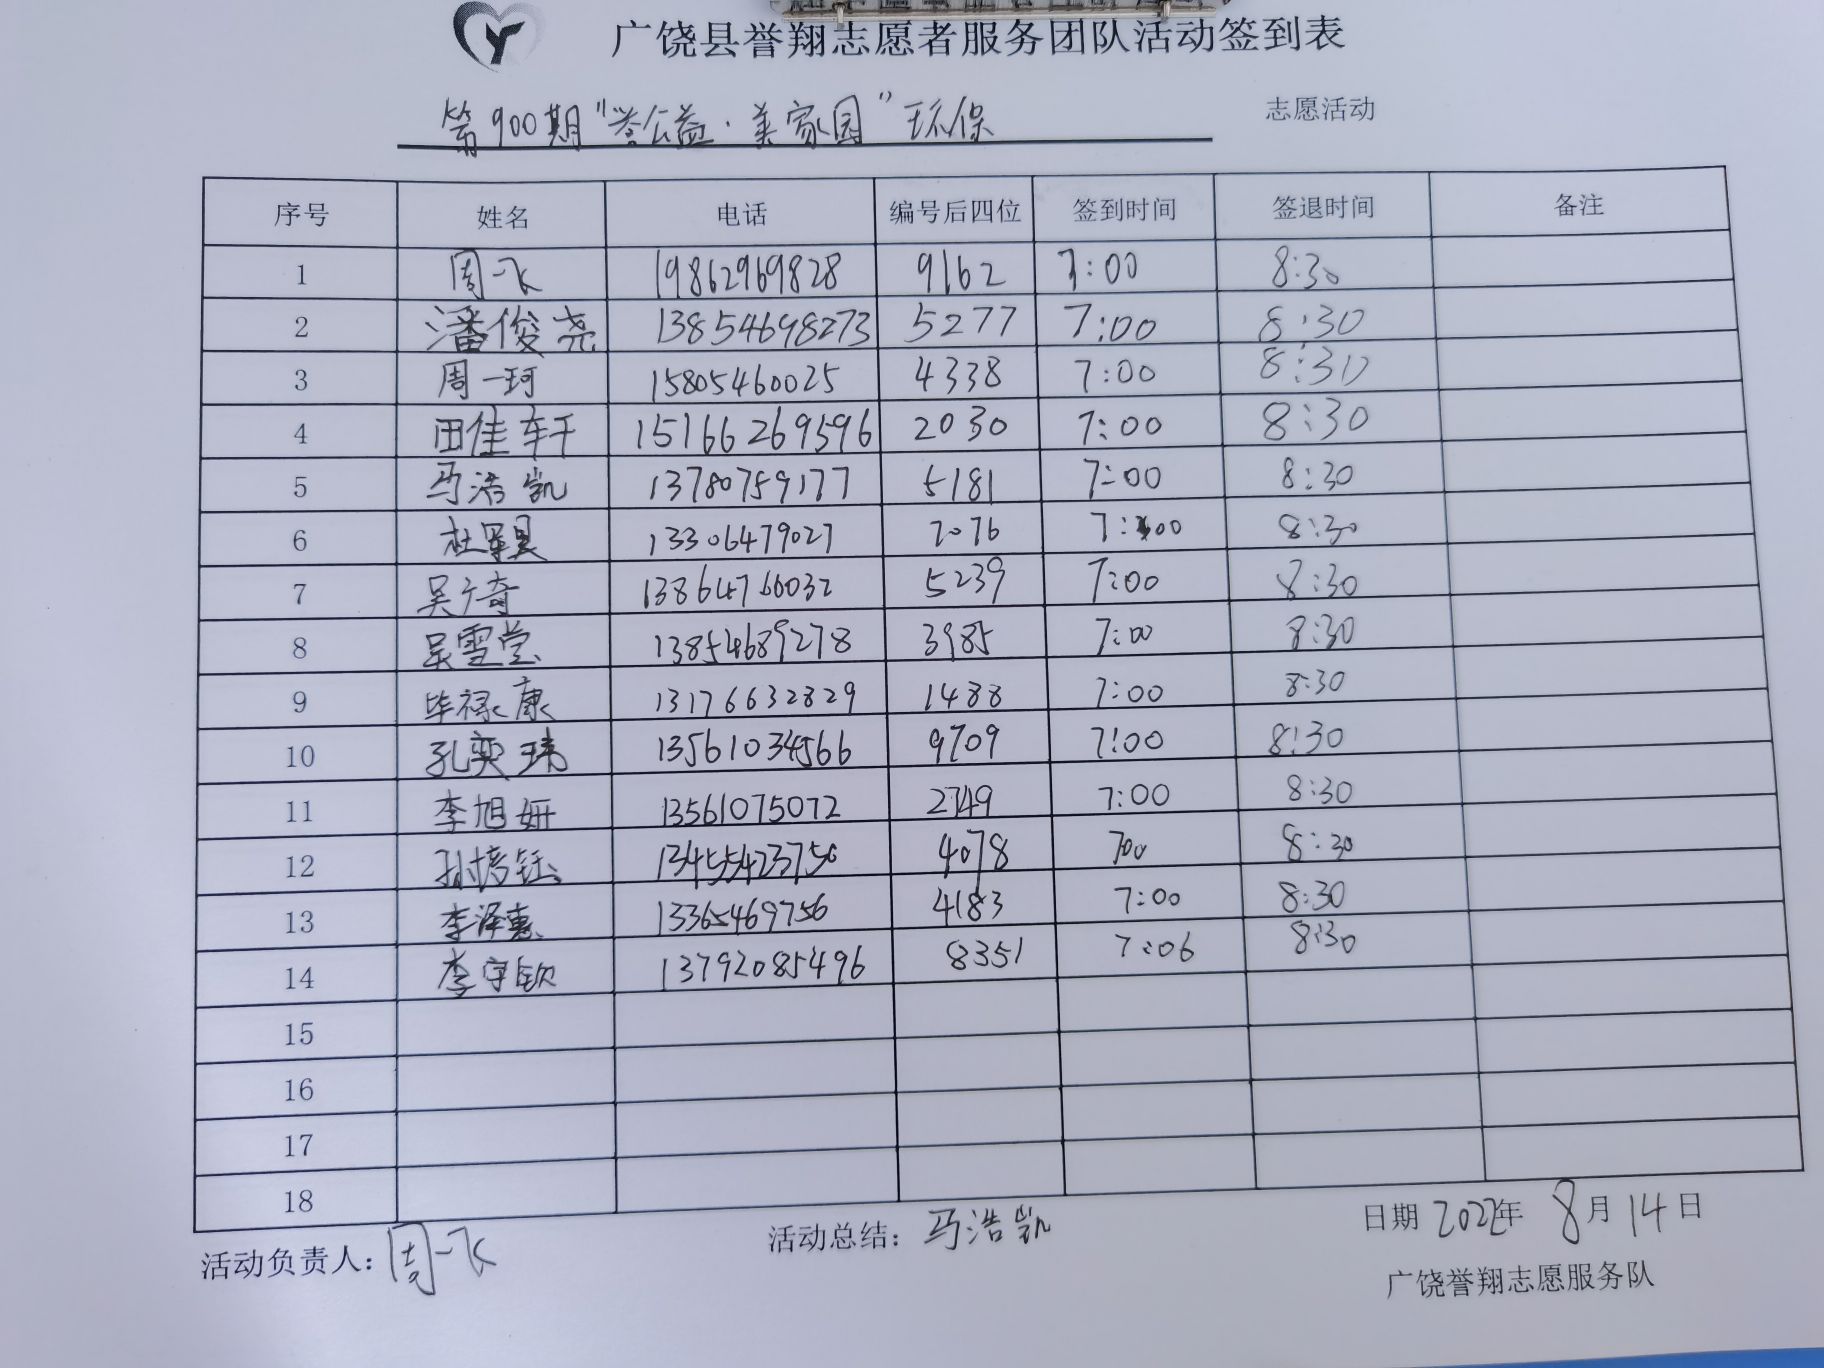 广饶县誉翔志愿者服务团队活动签到表
第900期“誉公益·美家园”环保 志愿活动
序号 姓名 电话 编号后四位 签到时间 签退时间 备注
1 周一飞 19862969828 9162 7:00 8:30
2 潘俊尧 13854698273 5277 7:00 8:30
3 周一珂 15805460025 4338 7:00 8:30
4 田佳轩 15166269596 2030 7:00 8:30
5 马浩凯 13780759177 5181 7:00 8:30
6 13306479027 7076 7:00 8:30
7 13864766032 5239 7:00 8:30
8 吴雪莹 13854689278 3985 7:00 8:30
9 毕禄康 13176632829 1488 7:00 8:30
10 孔奕玮 13561034566 9709 7:00 8:30
11 李旭妍 13561075072 2749 7:00 8:30
12 13455423750 4078 700 8:30
13 李泽惠 13365469756 4183 7:00 8:30
14 李宇钦 13792085496 8351 7:06 8:30
15
16
17
18
活动负责人：周一飞 活动总结：马浩凯 日期 2022年 8月14日
广饶誉翔志愿服务队